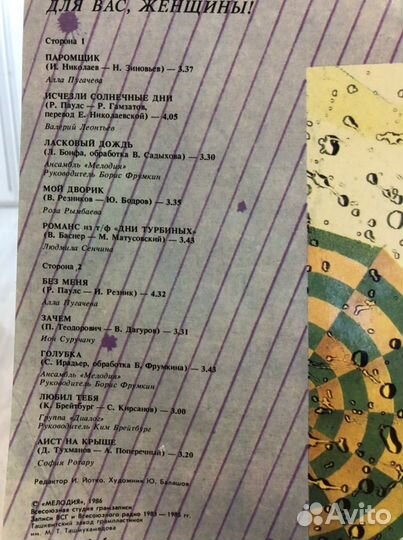 ДЛЯ ВАС, ЖЕНЩИНЫ!
Сторона 1
ПАРОМЩИК
(И. Николаев — Н. Зиновьев) — 3.37
Алла Пугачева
ИСЧЕЗЛИ СОЛНЕЧНЫЕ ДНИ
(Р. Паулс — Р. Гамзатов,
перевод Е. Николаевской) — 4.05
Валерий Леонтьев
ЛАСКОВЫЙ ДОЖДЬ
(Л. Бонфа, обработка В. Садыхова) — 3.30
Ансамбль «Мелодия»
Руководитель Борис Фрумкин
МОЙ ДВОРИК
(В. Резников — Ю. Бодров) — 3.35
Роза Рымбаева
РОМАНС из т/ф «ДНИ ТУРБИНЫХ»
(В. Баснер — М. Матусовский) — 3.43
Людмила Сенчина
Сторона 2
БЕЗ МЕНЯ
(Р. Паулс — И. Резник) — 4.32
Алла Пугачева
ЗАЧЕМ
(П. Теодорович — В. Дагуров) — 3,31
Ион Суручану
ГОЛУБКА
(С. Ирадьер, обработка Б. Фрумкина) — 3.43
Ансамбль «Мелодия»
Руководитель Борис Фрумкин
ЛЮБИЛ ТЕБЯ
(К. Брейтбург — С. Кирсанов) — 3.00
Группа «Диалог»
Руководитель Ким Брейтбург
АИСТ НА КРЫШЕ
(Д. Тухманов — А. Поперечный) — 3.20
София Ротару
Редактор И. Йотко. Художник Ю. Балашов
© «МЕЛОДИЯ», 1986
Всесоюзная студия грамзаписи.
Записи ВСГ и Всесоюзного радио 1983—1985 гг.
Ташкентский завод грампластинок
им. М. Т. Ташмухамедова
Avito